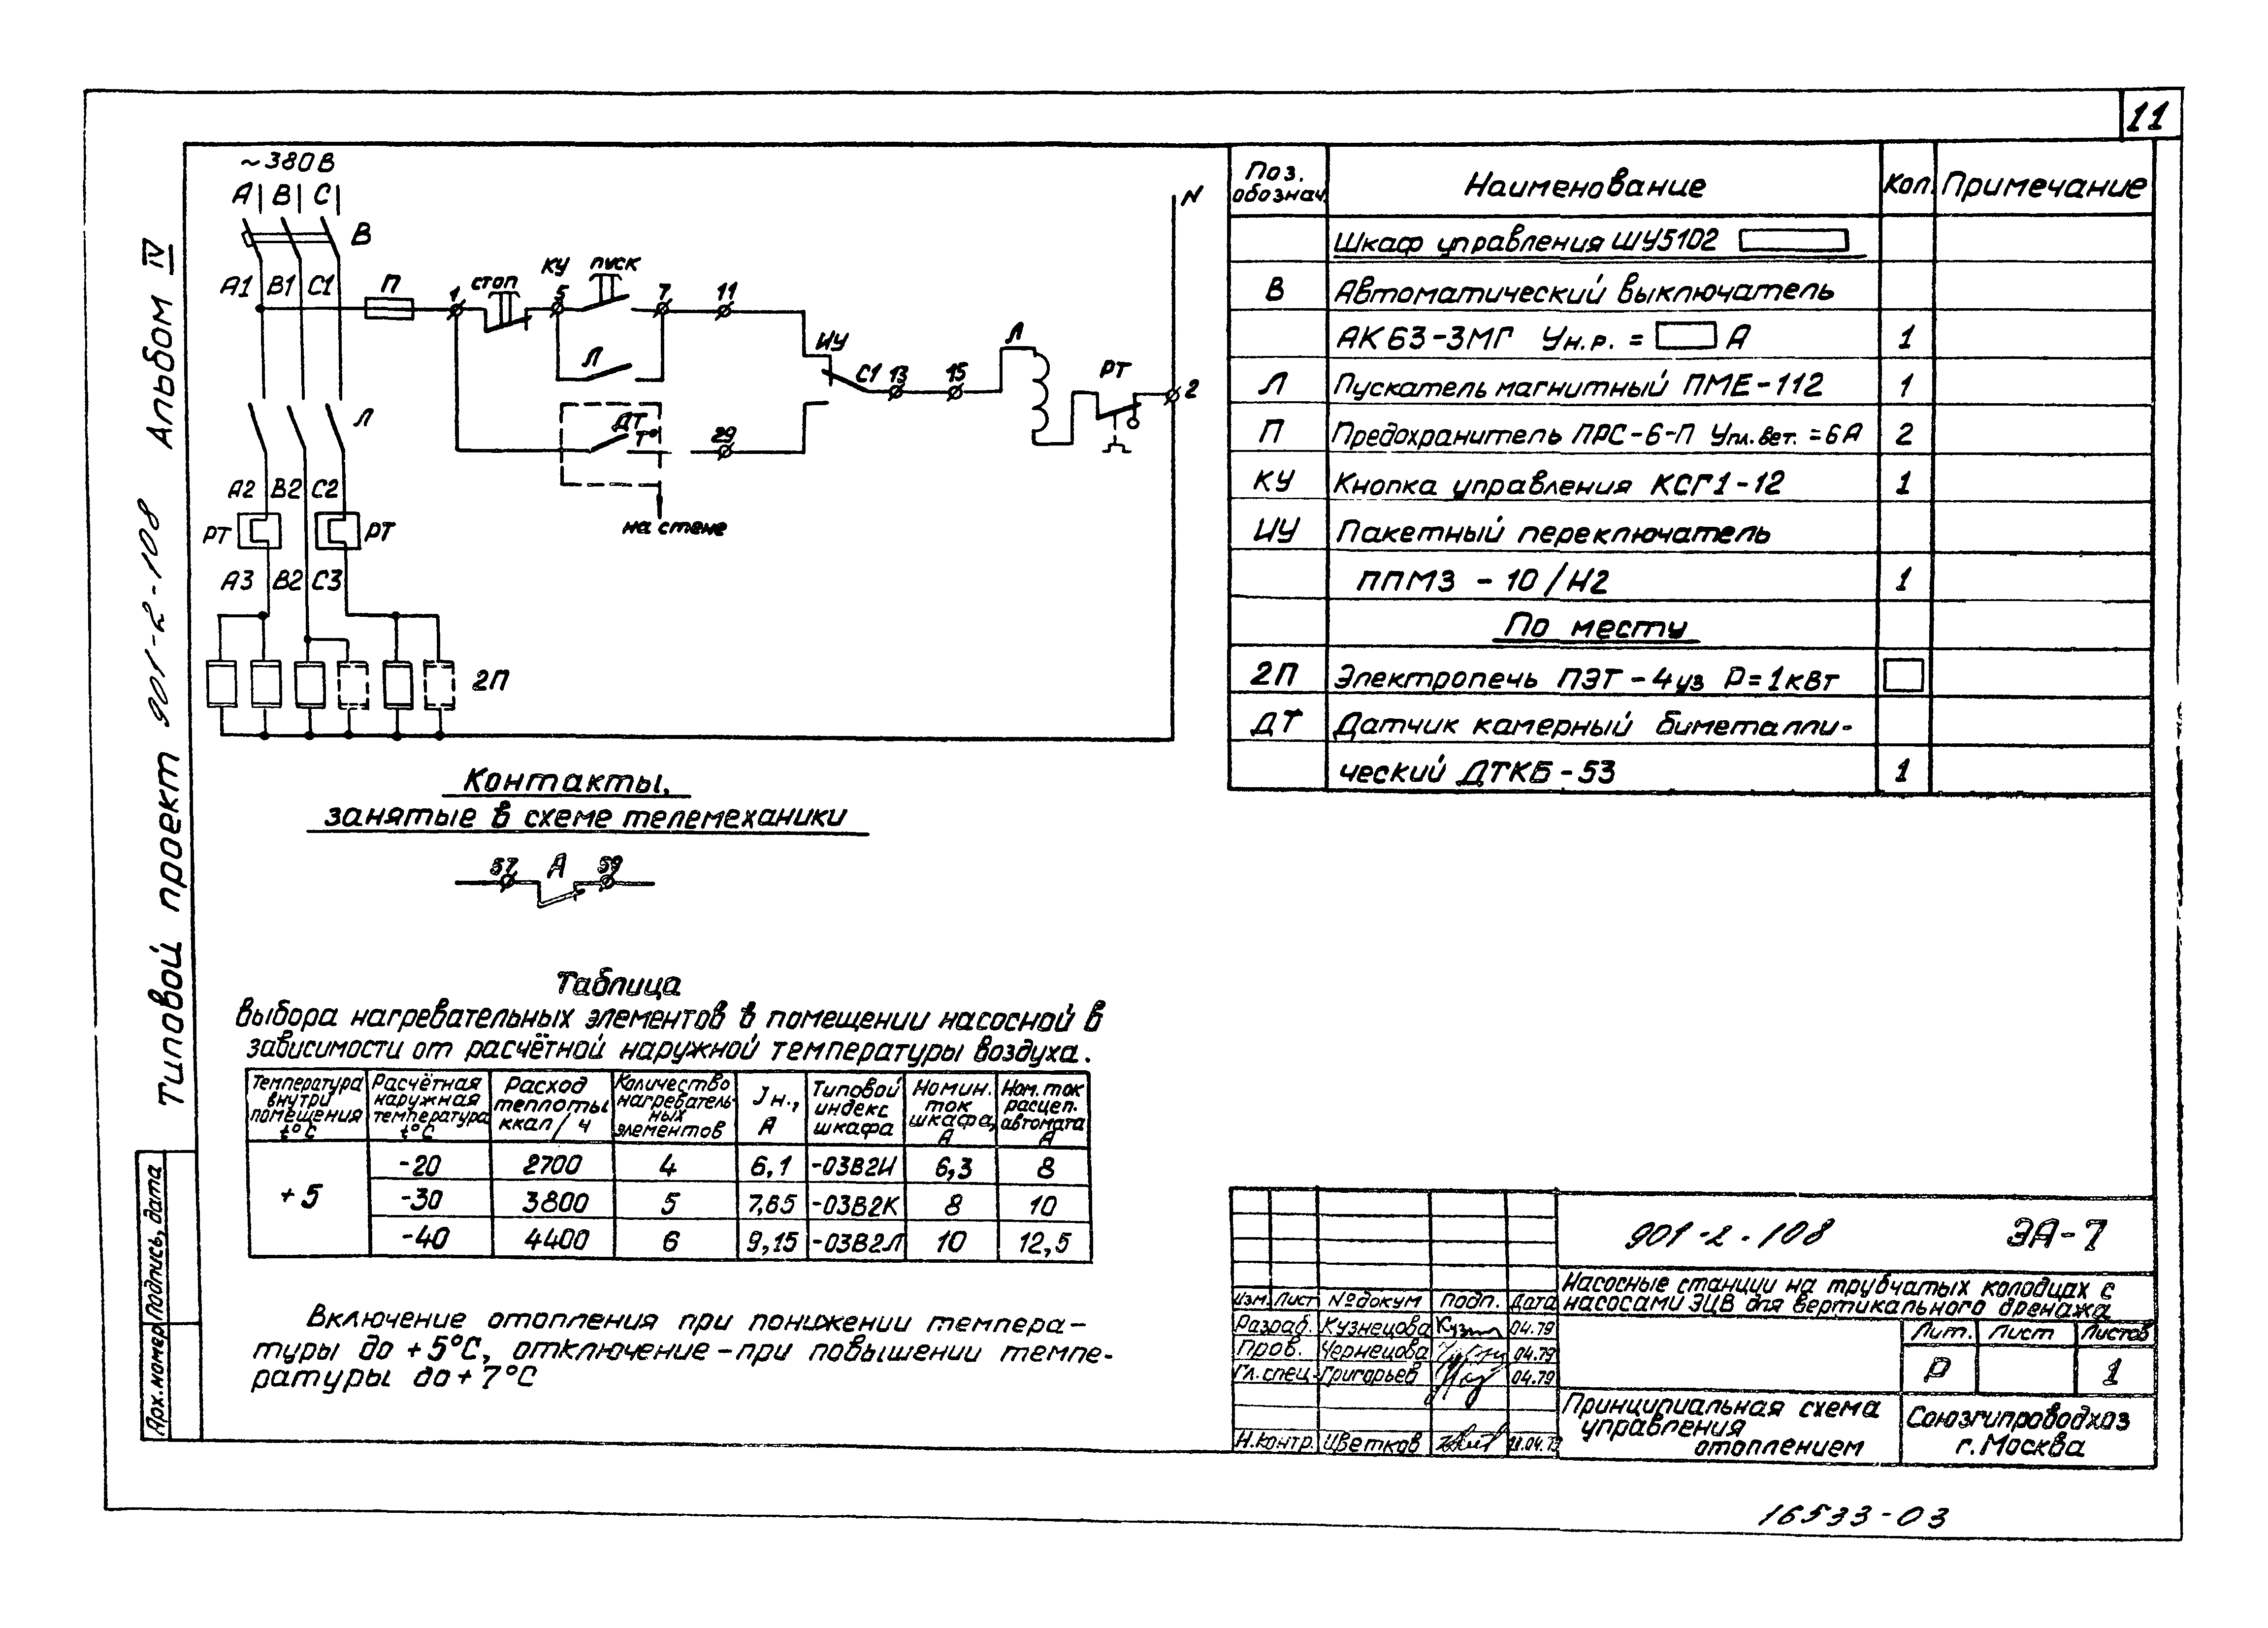 11
Типовой проект 901-2-108 Альбом IV
~380В
А В С
В
А1 В1 С1
П
1
СТОП
КУ
5
ПУСК
7
11
Л
ИУ
С1
13
15
Л
РТ
2
N
ДТ
Т°
29
на стене
Л
А2 В2 С2
РТ
РТ
А3 В2 С3
2П
Контакты,
занятые в схеме телемеханики
57 А 59
Поз. обознач. Наименование Кол. Примечание
Шкаф управления ШУ5102
В Автоматический выключатель
АК63-3МГ Ун.р. = А 1
Л Пускатель магнитный ПМЕ-112 1
П Предохранитель ПРС-6-П Упл.вст. =6А 2
КУ Кнопка управления КСГ1-12 1
ИУ Пакетный переключатель
ППМЗ - 10/Н2 1
По месту
2П Электропечь ПЭТ-4уз Р=1кВт
ДТ Датчик камерный биметалли-
ческий ДТКБ-53 1
Таблица
выбора нагревательных элементов в помещении насосной в
зависимости от расчётной наружной температуры воздуха.
Температура внутри помещения t°С Расчётная наружная температура t°С Расход теплоты ккал/ч Количество нагревательных элементов Jн., А Типовой индекс шкафа Номин. ток шкафа, А Ном. ток расцеп. автомата А
+5 -20 2700 4 6,1 -03В2И 6,3 8
-30 3800 5 7,65 -03В2К 8 10
-40 4400 6 9,15 -03В2Л 10 12,5
Включение отопления при понижении темпера-
туры до +5°С, отключение-при повышении темпе-
ратуры до+7°С
Подпись, дата
Арх.номер
901-2-108 ЭА-7
Насосные станции на трубчатых колодцах с
насосами ЭЦВ для вертикального дренажа
Изм. Лист №докум Подп. Дата
Разраб. Кузнецова 04.79
Пров. Чернецова 04.79
Гл.спец. Григорьев 04.79
Н.контр. Цветков
Лит. Лист Листов
Р 1
Принципиальная схема
управления
отоплением
Союзгипроводхоз
г.Москва
16533-03